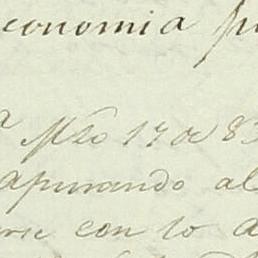 economia p
Mzo 17 de 83
apurando al
rse con lo d